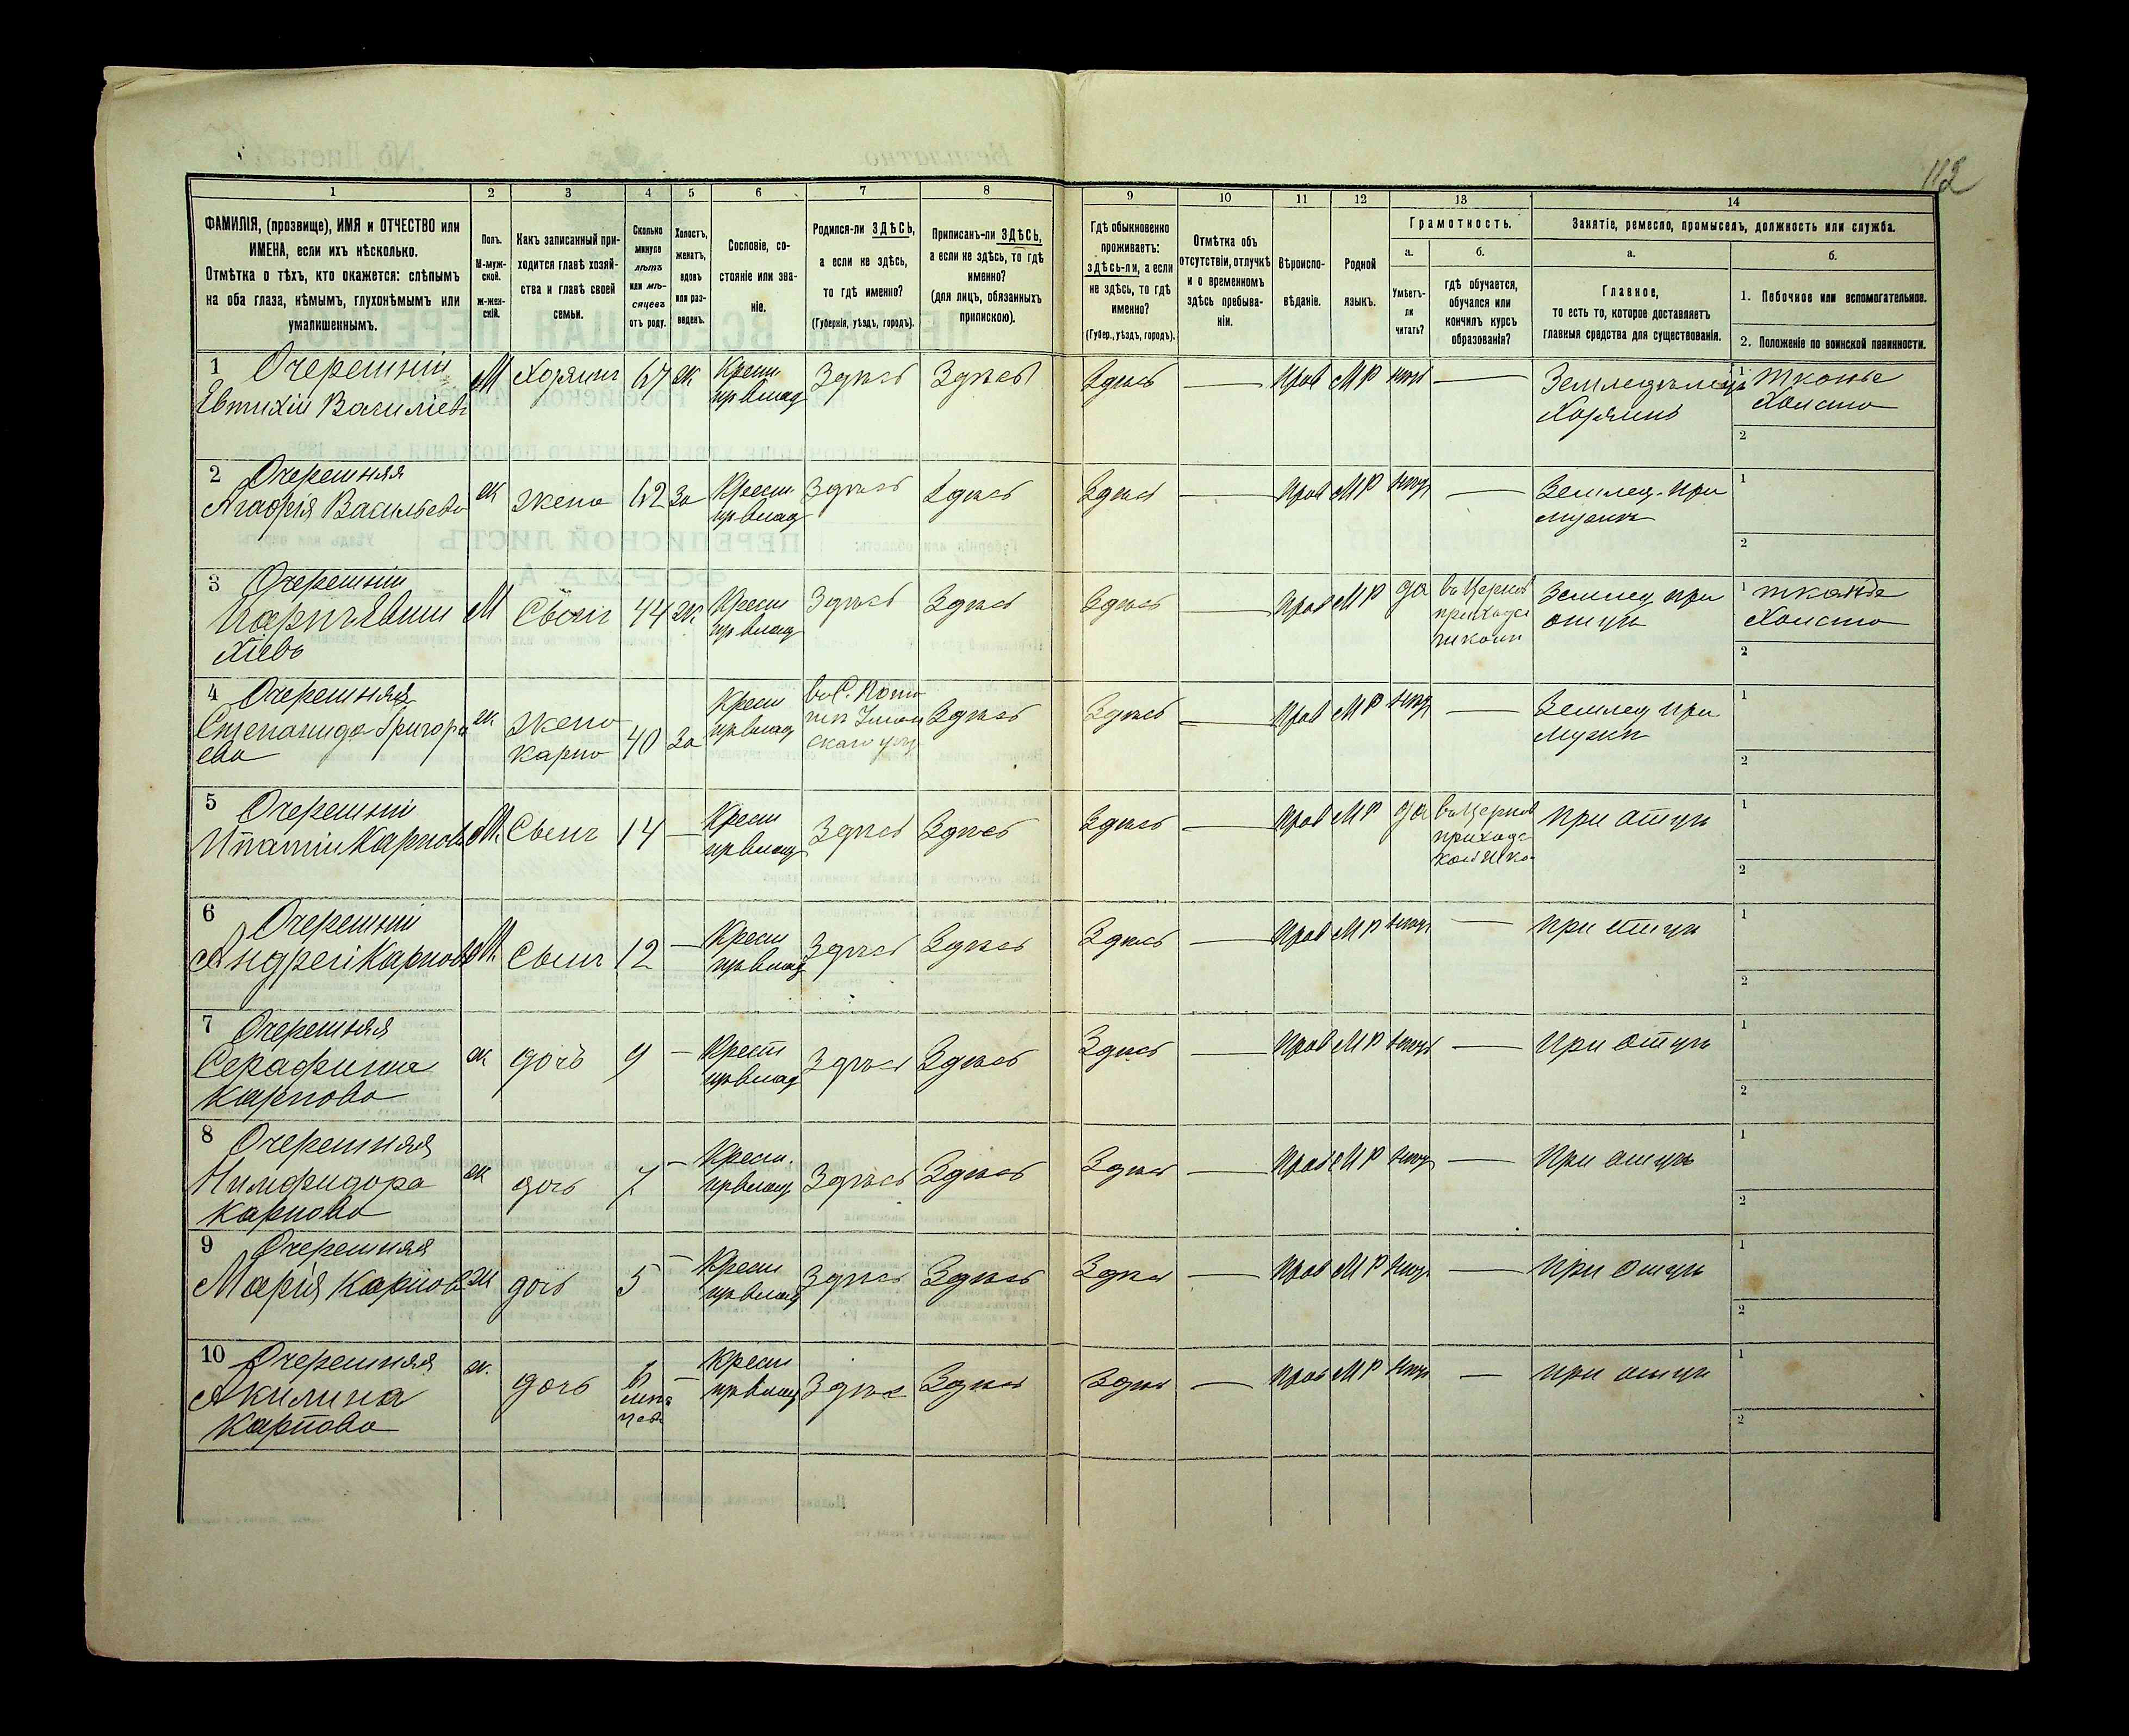 112
1 2 3 4 5 6 7 8 9 10 11 12 13 14
ФАМИЛІЯ, (прозвище), ИМЯ и ОТЧЕСТВО или
ИМЕНА, если ихъ нѣсколько.
Отмѣтка о тѣхъ, кто окажется: слѣпымъ
на оба глаза, нѣмымъ, глухонѣмымъ или
умалишеннымъ.
Полъ.
М-муж-
ской.
Ж-жен-
скій.
Какъ записанный при-
ходится главѣ хозяй-
ства и главѣ своей
семьи.
Сколько
минуло
лѣтъ
или мѣ-
сяцевъ
отъ роду.
Холостъ,
женатъ,
вдовъ
или раз-
веденъ.
Сословіе, со-
стояніе или зва-
ніе.
Родился-ли ЗДѢСЬ,
а если не здѣсь,
то гдѣ именно?
(Губернія, уѣздъ, городъ).
Приписанъ-ли ЗДѢСЬ,
а если не здѣсь, то гдѣ
именно?
(для лицъ, обязанныхъ
припискою).
Гдѣ обыкновенно
проживаетъ:
здѣсь-ли, а если
не здѣсь, то гдѣ
именно?
(Губер., уѣздъ, городъ).
Отмѣтка объ
отсутствіи, отлучкѣ
и о временномъ
здѣсь пребыва-
ніи.
Вѣроиспо-
вѣданіе.
Родной
языкъ.
Грамотность.
а.
Умѣетъ-
ли
читать?
б.
гдѣ обучается,
обучался или
кончилъ курсъ
образованія?
Занятіе, ремесло, промыселъ, должность или служба.
а.
Главное,
то есть то, которое доставляетъ
главныя средства для существованія.
б.
1. Побочное или вспомогательное.
2. Положеніе по воинской повинности.
1 Очерешній
Евтихій Васильевъ
М Хозяинъ 67 Ж Крест. Здѣсь Здѣсь Здѣсь — Прав МР — Земледѣлецъ
Хозяинъ
1 тканье
Холста
2
2 Очерешняя
Агафія Васильева
ж жена 62 За Крест. Здѣсь Здѣсь Здѣсь — Прав МР — Землед. при
мужѣ
1
2
3 Очерешній
Карпъ Евти
хіевъ
М Сынъ 44 Ж Крест Здѣсь Здѣсь Здѣсь — Прав МР да въ Церков
приходс
школѣ
Землед при
отцѣ
1 тканье
Холста
2
4 Очерешняя
Степанида Григорь
ева
ж жена
Карпа
40 За Крест Здѣсь Здѣсь — Прав МР — Землед при
Мужѣ
1
2
5 Очерешній
Ипатій Карповъ
М Сынъ 14 — Крест Здѣсь Здѣсь Здѣсь — Прав МР да въ Церков
приходс
кой шко
при отцѣ
1
2
6 Очерешній
Андрей Карповъ
М Сынъ 12 — Крест Здѣсь Здѣсь Здѣсь — Прав МР — при отцѣ
1
2
7 Очерешняя
Серафима
Карпова
ж дочь 9 — Крест Здѣсь Здѣсь Здѣсь — Прав МР — при отцѣ
1
2
8 Очерешняя
Нимфидора
Карпова
ж дочь 7 — Крест. Здѣсь Здѣсь Здѣсь — Прав МР — при отцѣ
1
2
9 Очерешняя
Марія Карпов
ж дочь 5 — Крест Здѣсь Здѣсь Здѣсь — Прав МР — при отцѣ
1
2
10 Очерешняя
Акилина
Карпова
ж. дочь 6
мѣся
цевъ
— Крест Здѣсь Здѣсь Здѣсь — Прав МР — при отцѣ
1
2